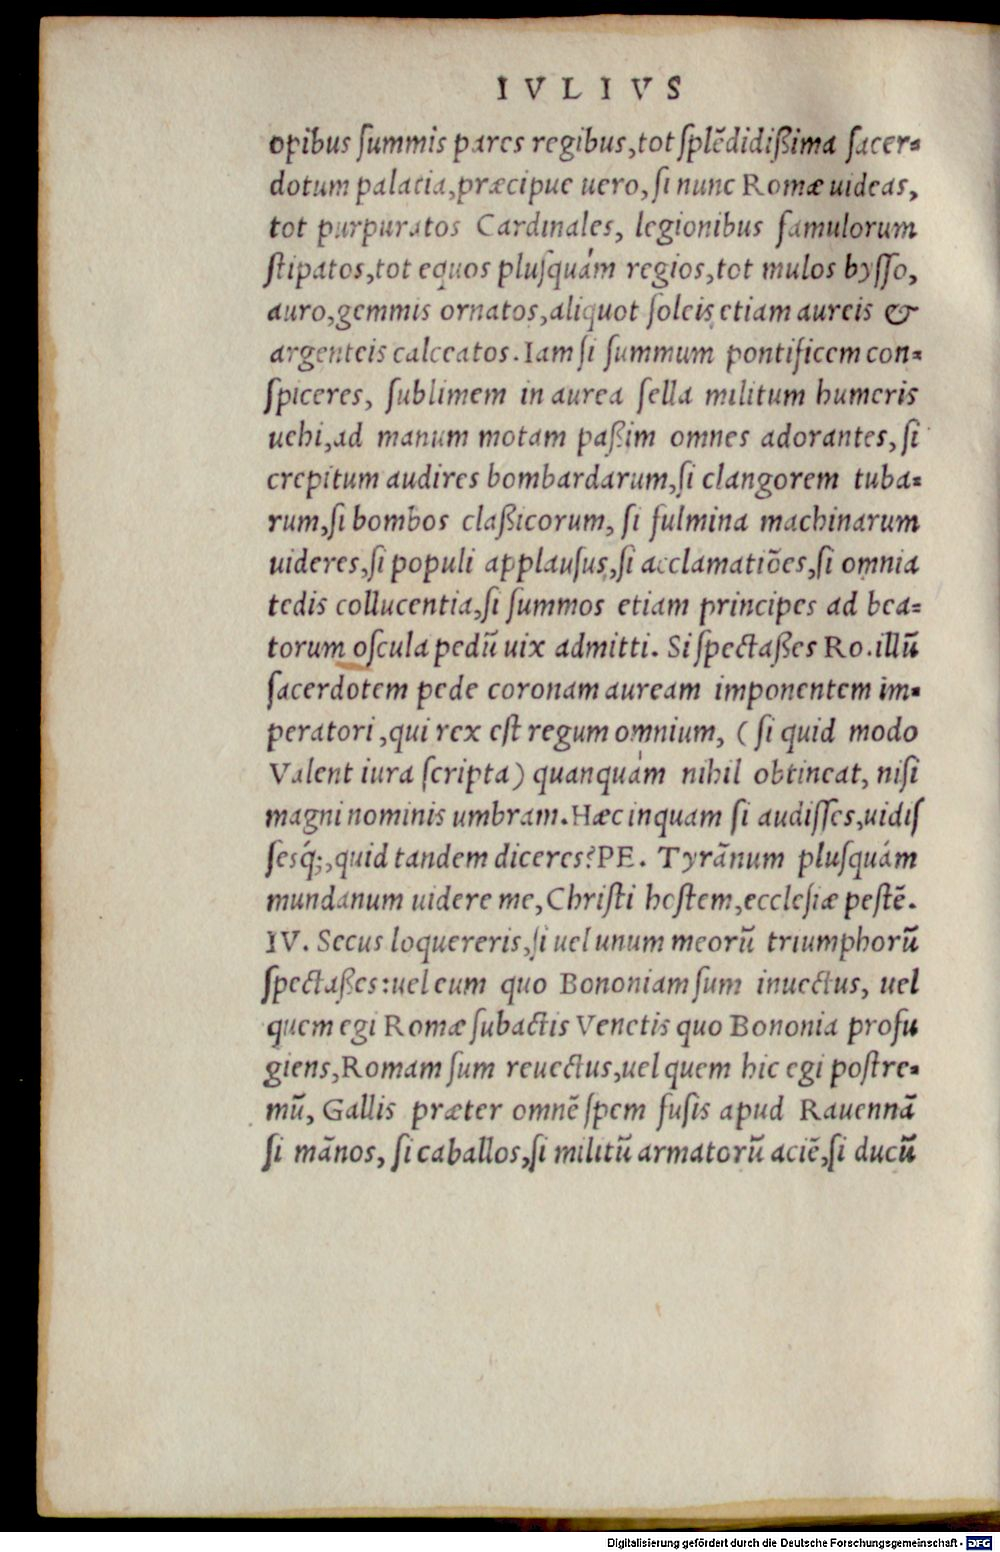 IVLIVS
opibus ſummis pares regibus,tot ſplēdidißima ſacer=
dotum palatia,præcipue uero,ſi nunc Romæ uideas,
tot purpuratos Cardinales, legionibus famulorum
ſtipatos,tot equos pluſquám regios,tot mulos byſſo,
auro,gemmis ornatos,aliquot ſoleis etiam aureis &
argenteis calceatos.Iam ſi ſummum pontificem con=
ſpiceres, ſublimem in aurea ſella militum humeris
uehi,ad manum motam paßim omnes adorantes,ſi
crepitum audires bombardarum,ſi clangorem tuba=
rum,ſi bombos claßicorum, ſi fulmina machinarum
uideres,ſi populi applauſus,ſi acclamatiões,ſi omnia
tedis collucentia,ſi ſummos etiam principes ad bea=
torum oſcula pedū uix admitti. Si ſpectaßes Ro.illū
ſacerdotem pede coronam auream imponentem im=
peratori,qui rex eſt regum omnium, (ſi quid modo
Valent iura ſcripta) quanquám nihil obtineat, niſi
magni nominis umbram.Hæc inquam ſi audiſſes,uidiſ
ſesq́;,quid tandem diceres?PE. Tyrānum pluſquám
mundanum uidere me,Chriſti hoſtem,eccleſiæ peſtē.
IV. Secus loquereris,ſi uel unum meorū triumphorū
ſpectaßes:uel eum quo Bononiam ſum inuectus, uel
quem egi Romæ ſubactis Venetis quo Bononia profu
giens,Romam ſum reuectus,uel quem hic egi poſtre=
mū, Gallis præter omnē ſpem fuſis apud Rauennā
ſi mānos, ſi caballos,ſi militū armatorū aciē,ſi ducū
Digitalisierung gefördert durch die Deutsche Forschungsgemeinschaft - DFG